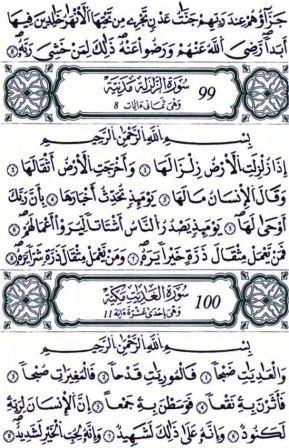 جَزَآؤُهُمْ عِندَ رَبِّهِمْ جَنَّٰتُ عَدْنٍ تَجْرِے مِن تَحْتِهَا اَ۬لَانْهَٰرُ خَٰلِدِينَ فِيهَآ
أَبَداٗ رَّضِيَ اَ۬للَّهُ عَنْهُمْ وَرَضُواْ عَنْهُ ذَٰلِكَ لِمَنْ خَشِيَ رَبَّهُۥ ٨
99 سُورَةُ اُ۬لزَّلْزَلَةِ مَدَنِيَّة
وَهْيَ ثَمَانِي ءَايَات 8
بِسْمِ اِ۬للَّهِ اِ۬لرَّحْمَٰنِ اِ۬لرَّحِيمِ
إِذَا زُلْزِلَتِ اِ۬لَارْضُ زِلْزَالَهَا ١ وَأَخْرَجَتِ اِ۬لَارْضُ أَثْقَالَهَا ٢
وَقَالَ اَ۬لِانسَٰنُ مَا لَهَا ٣ يَوْمَئِذٖ تُحَدِّثُ أَخْبَارَهَا ٤ بِأَنَّ رَبَّكَ
أَوْحَىٰ لَهَا ٥ يَوْمَئِذٖ يَصْدُرُ اُ۬لنَّاسُ أَشْتَاتاٗ لِّيُرَوَاْ اَعْمَٰلَهُمْ ٦
فَمَنْ يَّعْمَلْ مِثْقَالَ ذَرَّةٍ خَيْراٗ يَرَهُۥ ٧ وَمَنْ يَّعْمَلْ مِثْقَالَ ذَرَّةٖ شَرّاٗ يَرَهُۥ ٨
100 سُورَةُ اُ۬لْعَٰدِيَٰتِ مَكِّيَّة
وَهْيَ إِحْدَىٰ عَشْرَةَ ءَايَة 11
بِسْمِ اِ۬للَّهِ اِ۬لرَّحْمَٰنِ اِ۬لرَّحِيمِ
وَالْعَٰدِيَٰتِ ضَبْحاٗ ١ فَالْمُورِيَٰتِ قَدْحاٗ ٢ فَالْمُغِيرَٰتِ صُبْحاٗ ٣
فَأَثَرْنَ بِهِۦ نَقْعاٗ ٤ فَوَسَطْنَ بِهِۦ جَمْعاً ٥ اِنَّ اَ۬لِانسَٰنَ لِرَبِّهِۦ
لَكَنُودٞ ٦ وَإِنَّهُۥ عَلَىٰ ذَٰلِكَ لَشَهِيدٞ ٧ وَإِنَّهُۥ لِحُبِّ اِ۬لْخَيْرِ لَشَدِيدٌ ٨